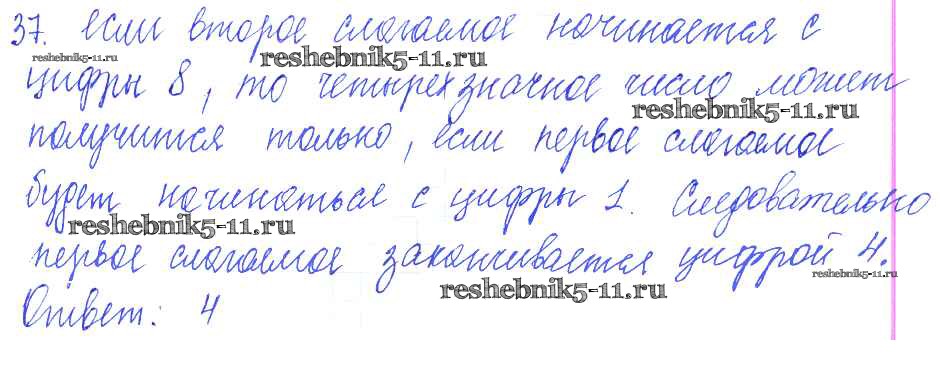 37. если второе слагаемое начинается с
reshebnik5-11.ru reshebnik5-11.ru
цифры 8, то четырехзначное число может
reshebnik5-11.ru
получится только, если первое слагаемое
будет начинаться с цифры 1. Следовательно
reshebnik5-11.ru
первое слагаемое заканчивается цифрой 4.
reshebnik5-11.ru
reshebnik5-11.ru
Ответ: 4